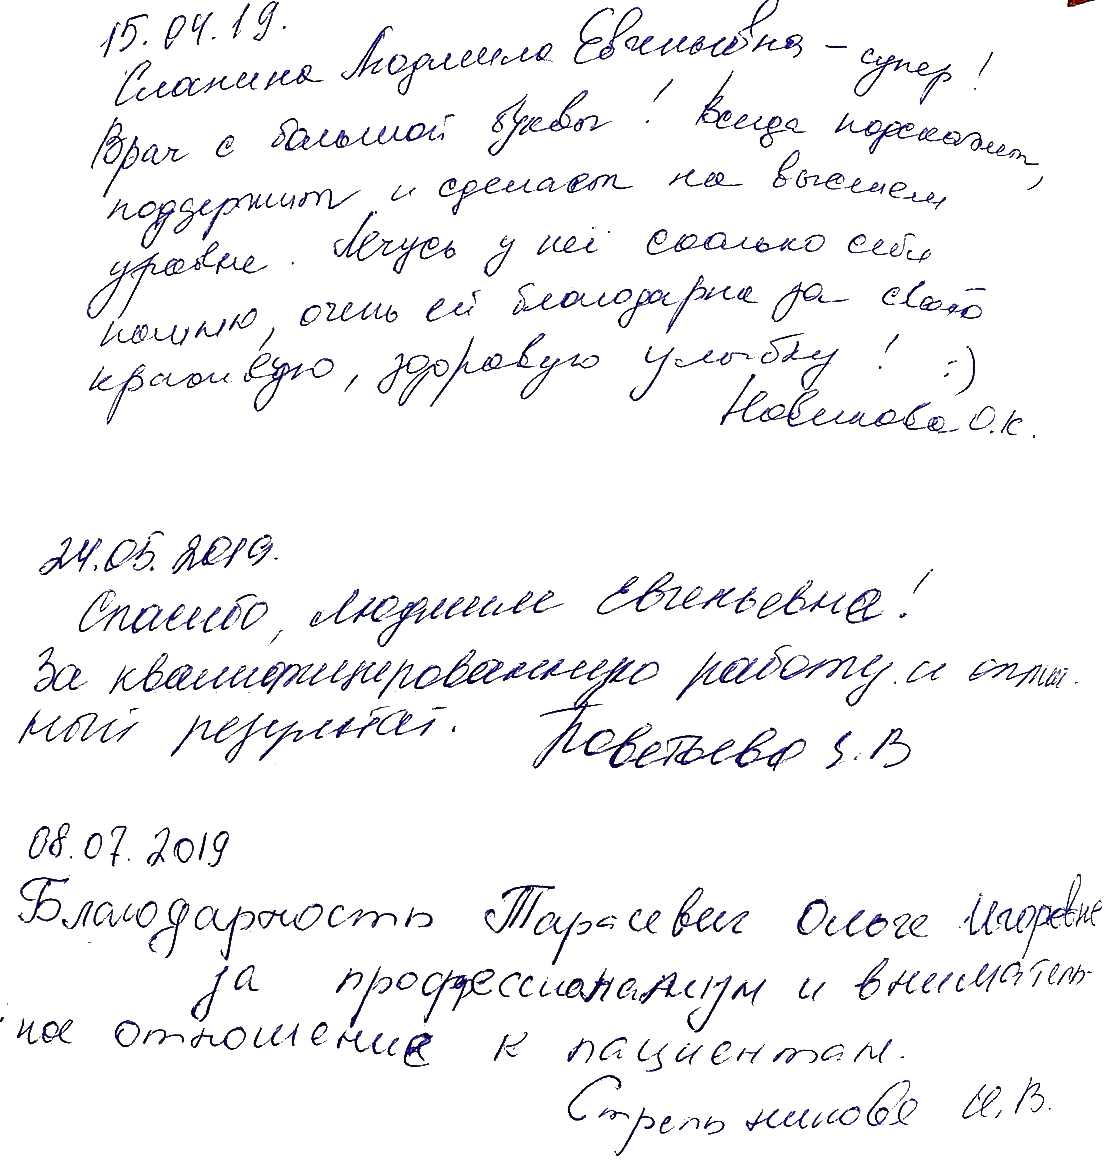 15.04.19.
Сланина Людмила Евгеньевна – супер!
Врач с большой буквы! Всегда подскажет,
поддержит и сделает на высшем
уровне. Лечусь у неё сколько себя
помню, очень ей благодарна за свою
красивую, здоровую улыбку! :)
Новикова О.К.
24.05.2019.
Спасибо, Людмиле Евгеньевне!
За квалифицированную работу и отлич.
ный результат. В
08.07.2019
Благодарность Тарасевич Ольге Игоревне
за профессионализм и вниматель-
ное отношение к пациентам.
Стрельникова И.В.